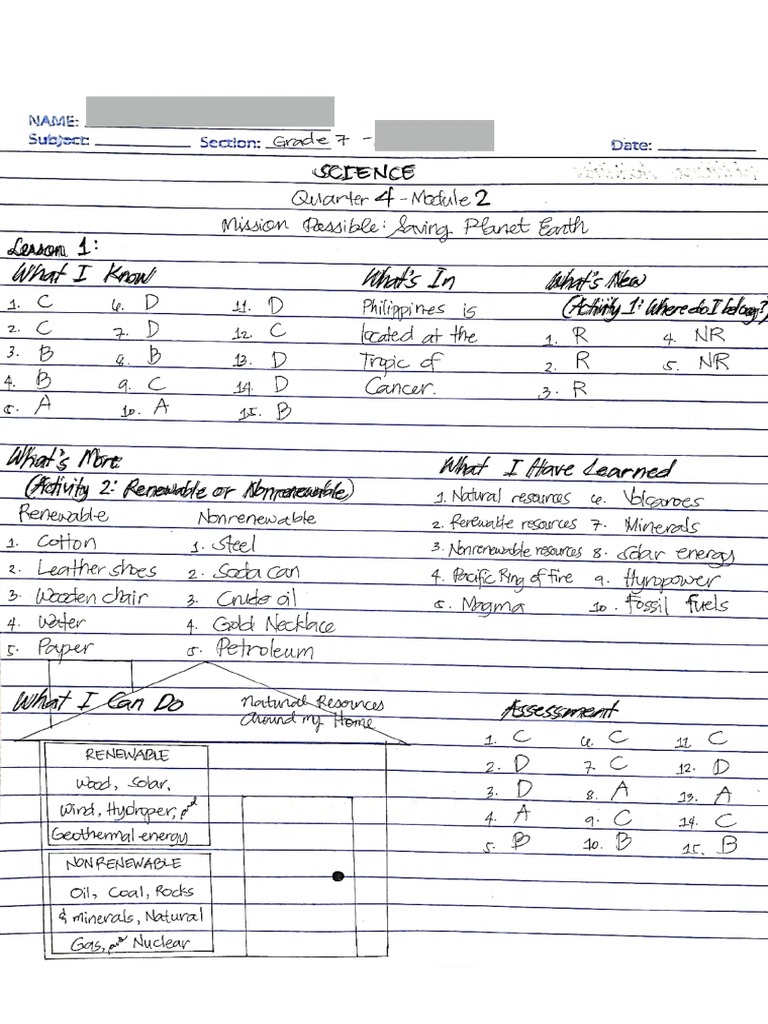 NAME:
Subject: Section: Grade 7 - Date:
SCIENCE
Quarter 4 - Module 2
Mission Possible: Saving Planet Earth
Lesson 1:
What I Know
1. C 6. D 11. D
2. C 7. D 12. C
3. B 8. B 13. D
4. B 9. C 14. D
5. A 10. A 15. B
What's In
Philippines is
located at the
Tropic of
Cancer.
What's New
(Activity 1: Where do I belong?)
1. R 4. NR
2. R 5. NR
3. R
What's More
(Activity 2: Renewable or Nonrenewable)
Renewable Nonrenewable
1. Cotton 1. Steel
2. Leather shoes 2. Soda can
3. Wooden chair 3. Crude oil
4. Water 4. Gold Necklace
5. Paper 5. Petroleum
What I Have Learned
1. Natural resources 6. Volcanoes
2. Renewable resources 7. Minerals
3. Nonrenewable resources 8. Solar energy
4. Pacific Ring of fire 9. Hyropower
5. Magma 10. Fossil fuels
What I Can Do
Natural Resources
Around my Home
RENEWABLE
Wood, Solar,
Wind, Hydroper, and
Geothermal energy
NONRENEWABLE
Oil, Coal, Rocks
& minerals, Natural
Gas, and Nuclear
Assessment
1. C 6. C 11. C
2. D 7. C 12. D
3. D 8. A 13. A
4. A 9. C 14. C
5. B 10. B 15. B